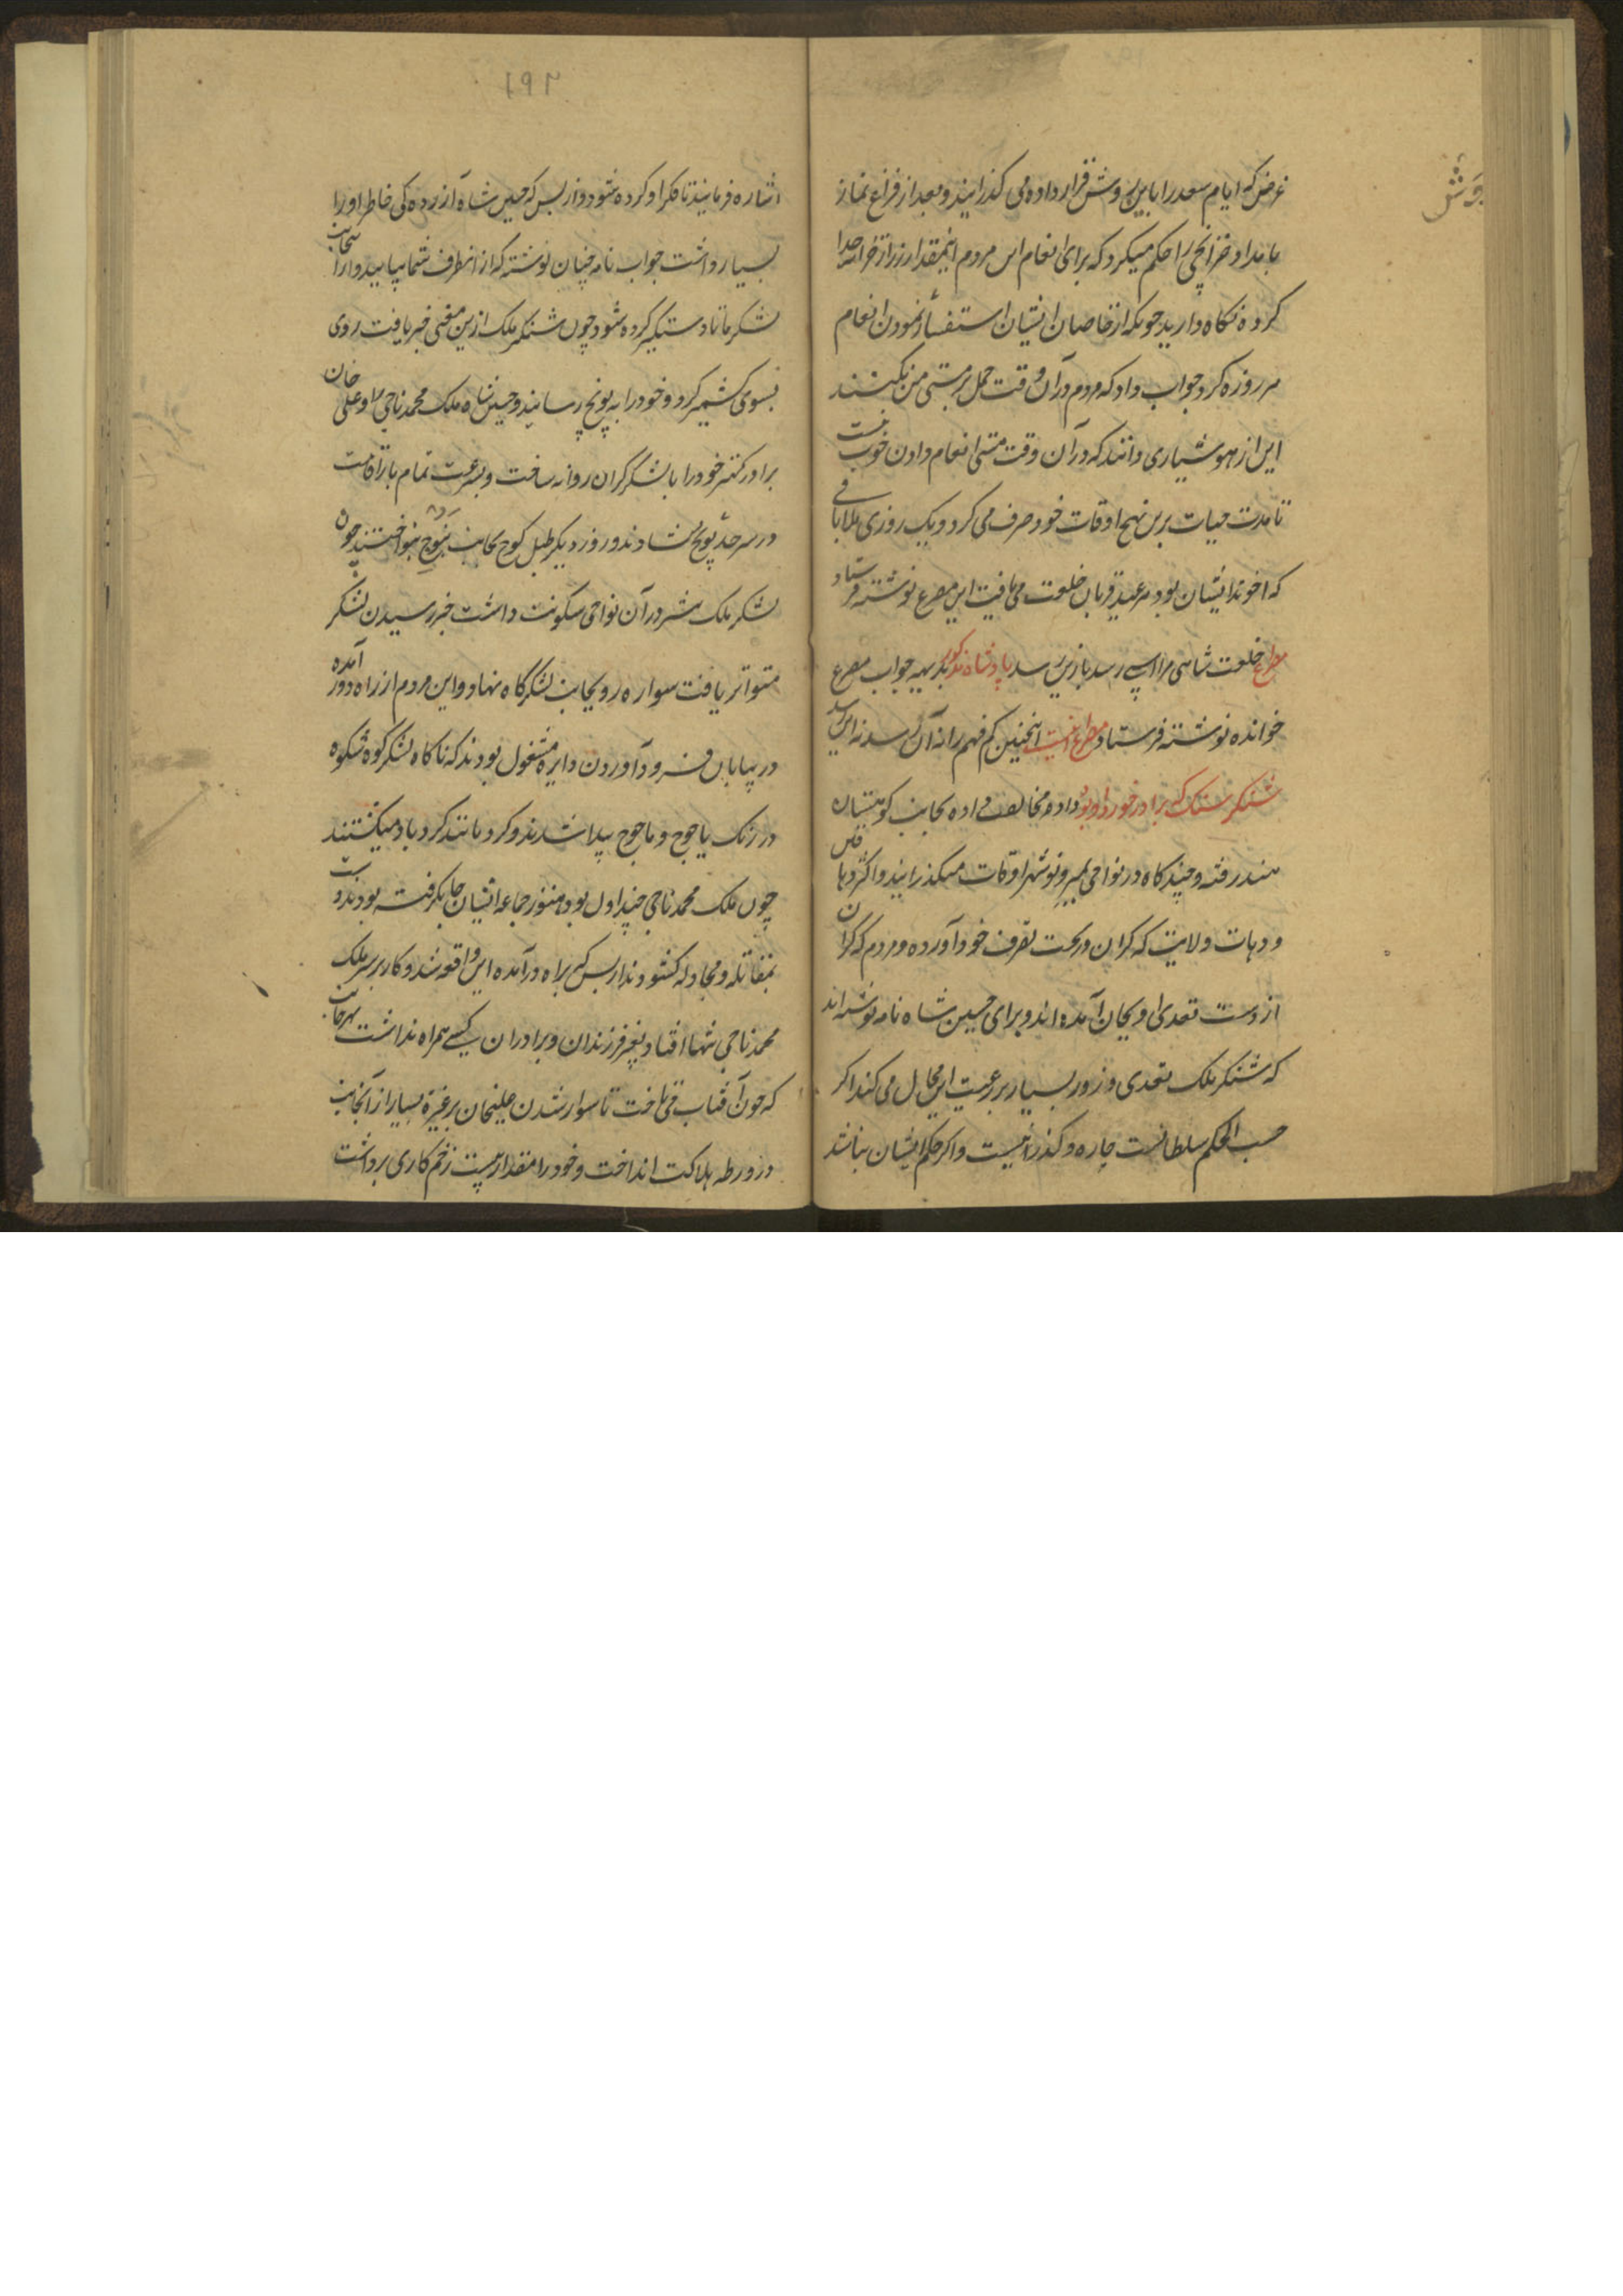 غرض که ایام سعد را باین روش قرار داده می کذرانید و بعد از فراغ نماز
بامداد خزانچی را حکم میکرد که برای انعام این مردم اینمقدار زر از خزانه جدا
کرده نکاه دارید چونکه از خاصان ایشان استفسار نمودن انعام
هر روزه کرد جواب داد که مردم در آن وقت حمل بر مستی من نکنند
این از هوشیاری دانند که در آن وقت مستی انعام دادن خوب نیست
تا مدت حیات برین نهج اوقات خود صرف می کرد و یک روزی
که اخوند ایشان بود هر عید قربان خلعت می یافت این مصرع نوشته فرستاد
مصراع خلعت شاهی مرا رسد باز پس رسد پادشاه مذکور بدیهه جواب مصرع
خوانده نوشته فرستاد مصراع اینست اینچنین کم فهم را نه آن رسد نه این رسد
شنکر که برادر خورد او بود داده مخالفت داده بجانب کوهستان
هند رفته و چند کاه در نواحی و نوشهر اوقات میکذرانید و اکثر
و دهات ولایت که کران در تحت تصرف خود آورده و مردم
از دست تعدی او بجان آمده اند و برای حسین شاه نامه نوشته اند
که شنکر ملک تعدی و زور بسیار بر رعیت این محال می کند اکر
حسب الحکم سلطانست چاره و کذر نیست و اکر حکم ایشان نباشد
۱۹۲
اشاره فرمایند تا فکر او کرده شود و از بس که حسین شاه آزرده کی خاطر او را
بسیار داشت جواب نامه چنان نوشته که از آنطرف شما بیایید و از اینجانب
لشکر ما تا دستکیر کرده شود چون شنکر ملک ازین معنی خبر یافت روی
بسوی کشمیر کرد و خود را به پونچ رسانید و حسین شاه ملک محمد ناجی و علی خان
برادر کهتر خود را با لشکر کران روانه ساخت و بسرعت تمام
در سرحد پونچ نشاندند و روز دیکر طبل کوچ بجانب بنواختند چون
لشکر ملک شنکر در آن نواحی سکونت داشت خبر رسیدن لشکر
متواتر یافت سواره رو بجانب لشکرکاه نهاد و این مردم از راه دور آمده
در بیابان فرود آوردن دایره مشغول بودند که ناکاه لشکر کوه شکوه
در رنک یاجوج و ماجوج پیدا شدند و کرد مانند کرد باد میکشتند
چون ملک محمد ناجی اول بود هنوز جماعه ایشان جا نکرفته بودند و دست
بمقاتله و مجادله کشودند از بس که براه درآمده این واقعه شد و کار بر سر ملک
محمد ناجی تنها افتاد بغیر فرزندان و برادران کسی همراه نداشت بهر جانب
که چون آفتاب می تاخت تا سوار شدن علیخان بسیار از آنجانب
در ورطه هلاکت انداخت و خود را مقدار بیست زخم کاری برداشت